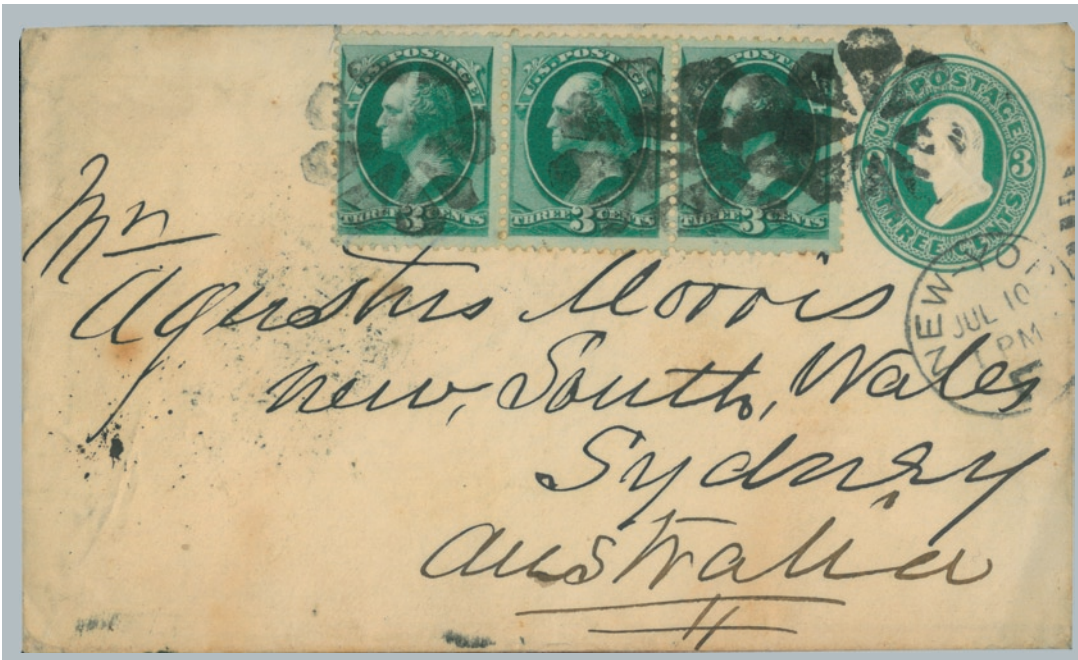 U.S. POSTAGE U.S. POSTAGE U.S. POSTAGE
THREE 3 CENTS THREE 3 CENTS THREE 3 CENTS
U.S. POSTAGE
3 3
THREE CENTS
NEW-YO
JUL 10
1 PM
Mr
Agustus Morris
new, South, Wales
Sydney
Australia